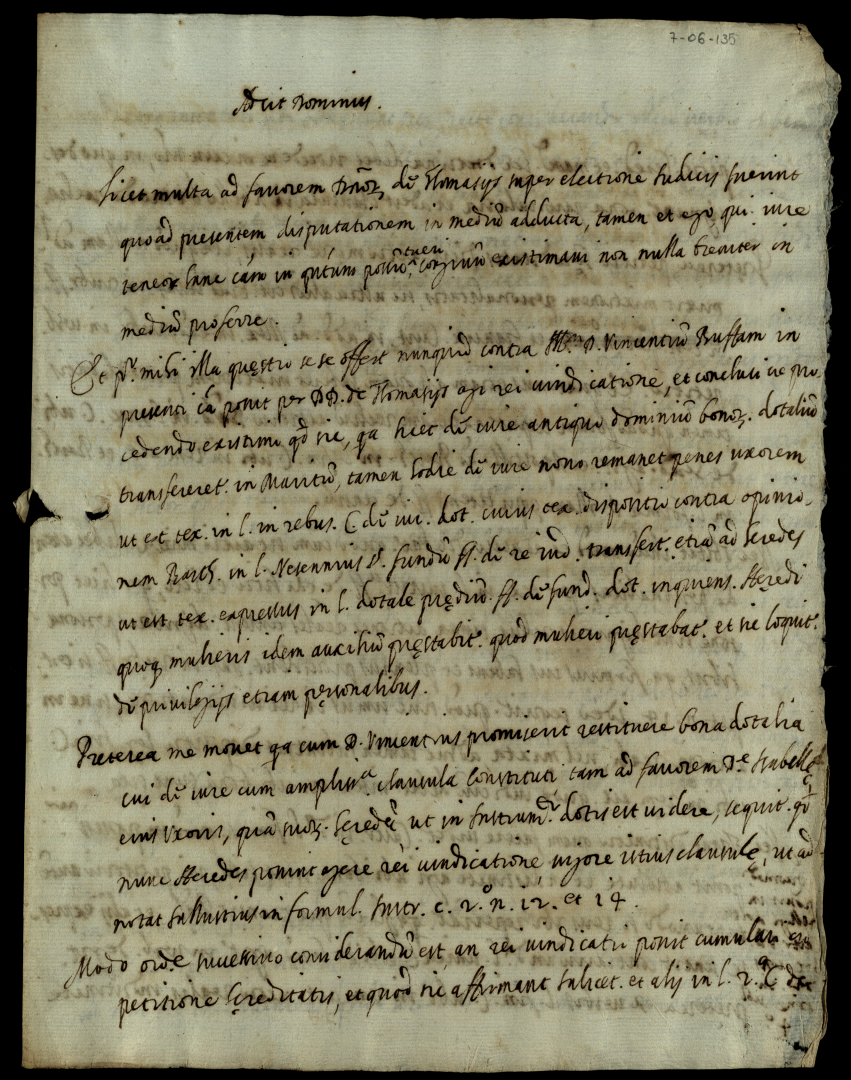 7-06-135
Adsit Dominus.
Licet multa ad favorem DD. de Thomasijs super electione Iudicis fuerint
quoad presentem disputationem in mediū adducta, tamen et ego, qui iure
teneor hanc cām in qūtum possū, tueri, congruū existimavi non nulla breviter in
mediū proferre.
Et pº. mihi illa questio se se offert nunquid contra D. Vincentiū Buffam in
presenti cā possit per DD. de Thomasijs agi rei vindicatione, et conclusive pro-
cedendo existimo qd sic, qa licet de iure antiquo dominiū bonor. dotaliū
transferret. in Maritū, tamen hodie de iure novo remanet penes uxorem
ut est tex. in l. in rebus. C. de iur. dot. cuius tex. dispositio contra opinio-
nem Barth. in l. Nesennius §. fundū ff. de re iud. transfert. etiā ad heredes
ut est tex. expressus in l. dotale prędiū. ff. de fund. dot. inquiens. Heredi
quoq mulieris idem auxiliū pręstabit. quod mulieri pręstabat. et sic loquit.
de privilegijs etiam personalibus.
Preterea me movet qa cum D. Vincentius promiserit restituere bona dotalia
cui de iure cum amplissª. clausula constituti tam ad favorem Dę Isabellę
eius Uxoris, quā suor. heredū ut in Instrumº. dotis est videre, sequit. qd
nunc Heredes possint agere rei vindicatione, vigore istius clausulę, ut ad
notat Sallustius in formul. Instr. c. 2.º n. 12. et 14.
Modo ordꝫ successivo considerandū est an rei vindicatio possit cumulari cū
petitione hereditatis, et quod sic affirmant Salicet. et alij in l. 2.ª C. de